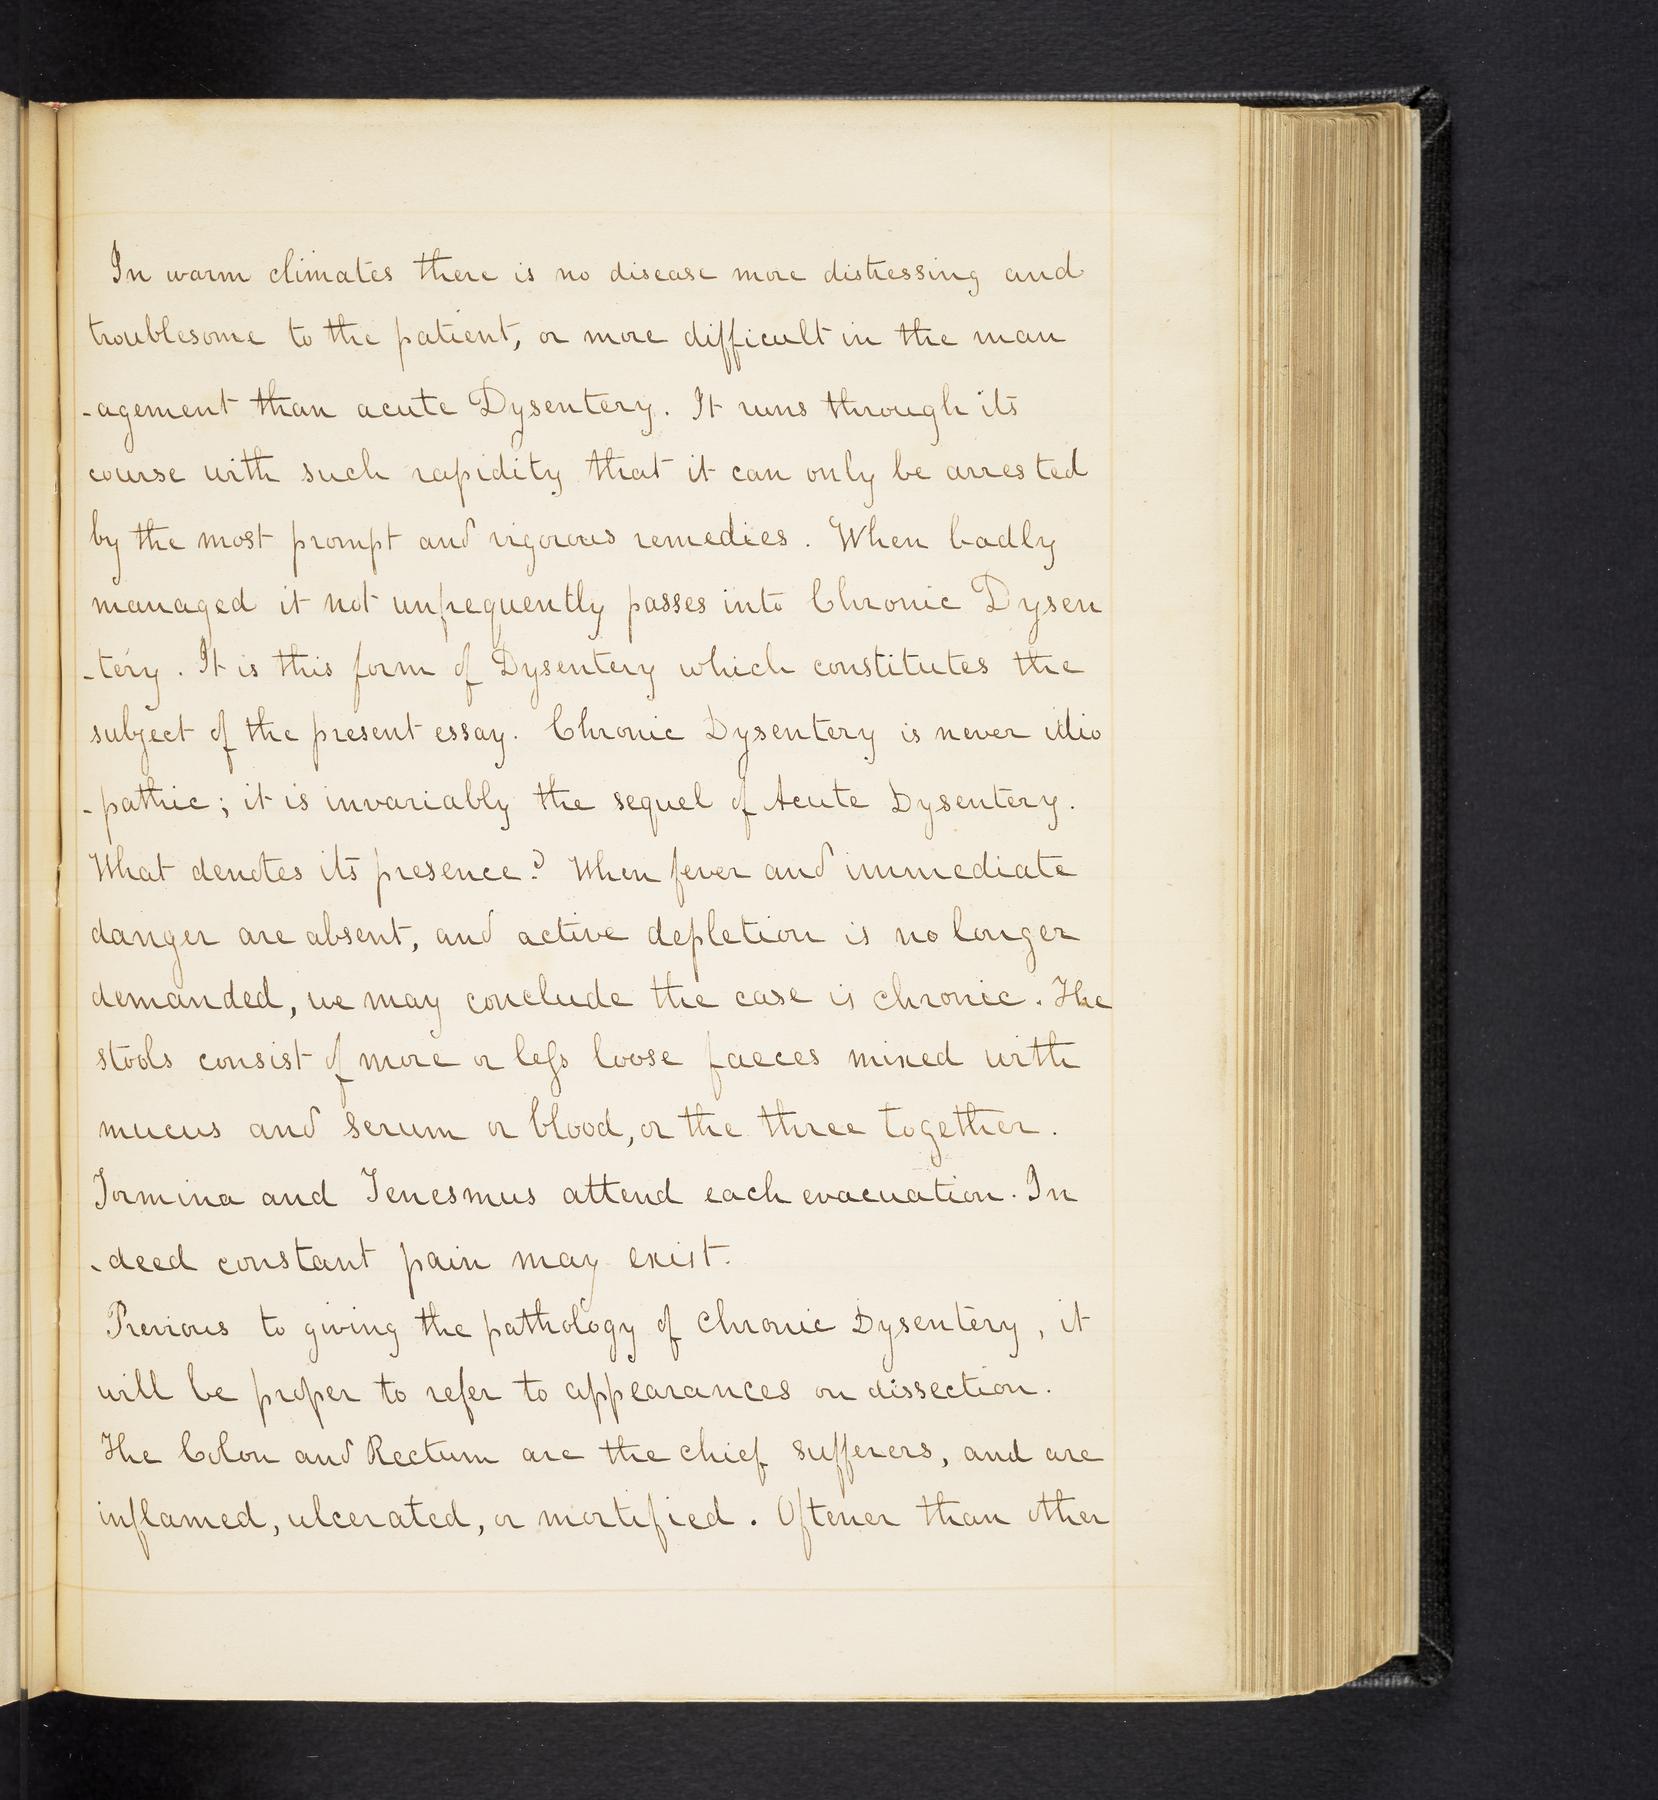 In warm climates there is no disease more distressing and
troublesome to the patient, or more difficult in the man
-agement than acute Dysentery. It runs through its
course with such rapidity that it can only be arrested
by the most prompt and vigorous remedies. When badly
managed it not unfrequently passes into Chronic Dysen
-tery. It is this form of Dysentery which constitutes the
subject of the present essay. Chronic Dysentery is never idio
-pathic; it is invariably the sequel of Acute Dysentery.
What denotes its presence? When fever and immediate
danger are absent, and active depletion is no longer
demanded, we may conclude the case is chronic. The
stools consist of more or less loose faeces mixed with
mucus and serum or blood, or the three together.
Tormina and Tenesmus attend each evacuation. In
-deed constant pain may exist.
Previous to giving the pathology of Chronic Dysentery, it
will be proper to refer to appearances on dissection.
The Colon and Rectum are the chief sufferers, and are
inflamed, ulcerated, or mortified. Oftener than other